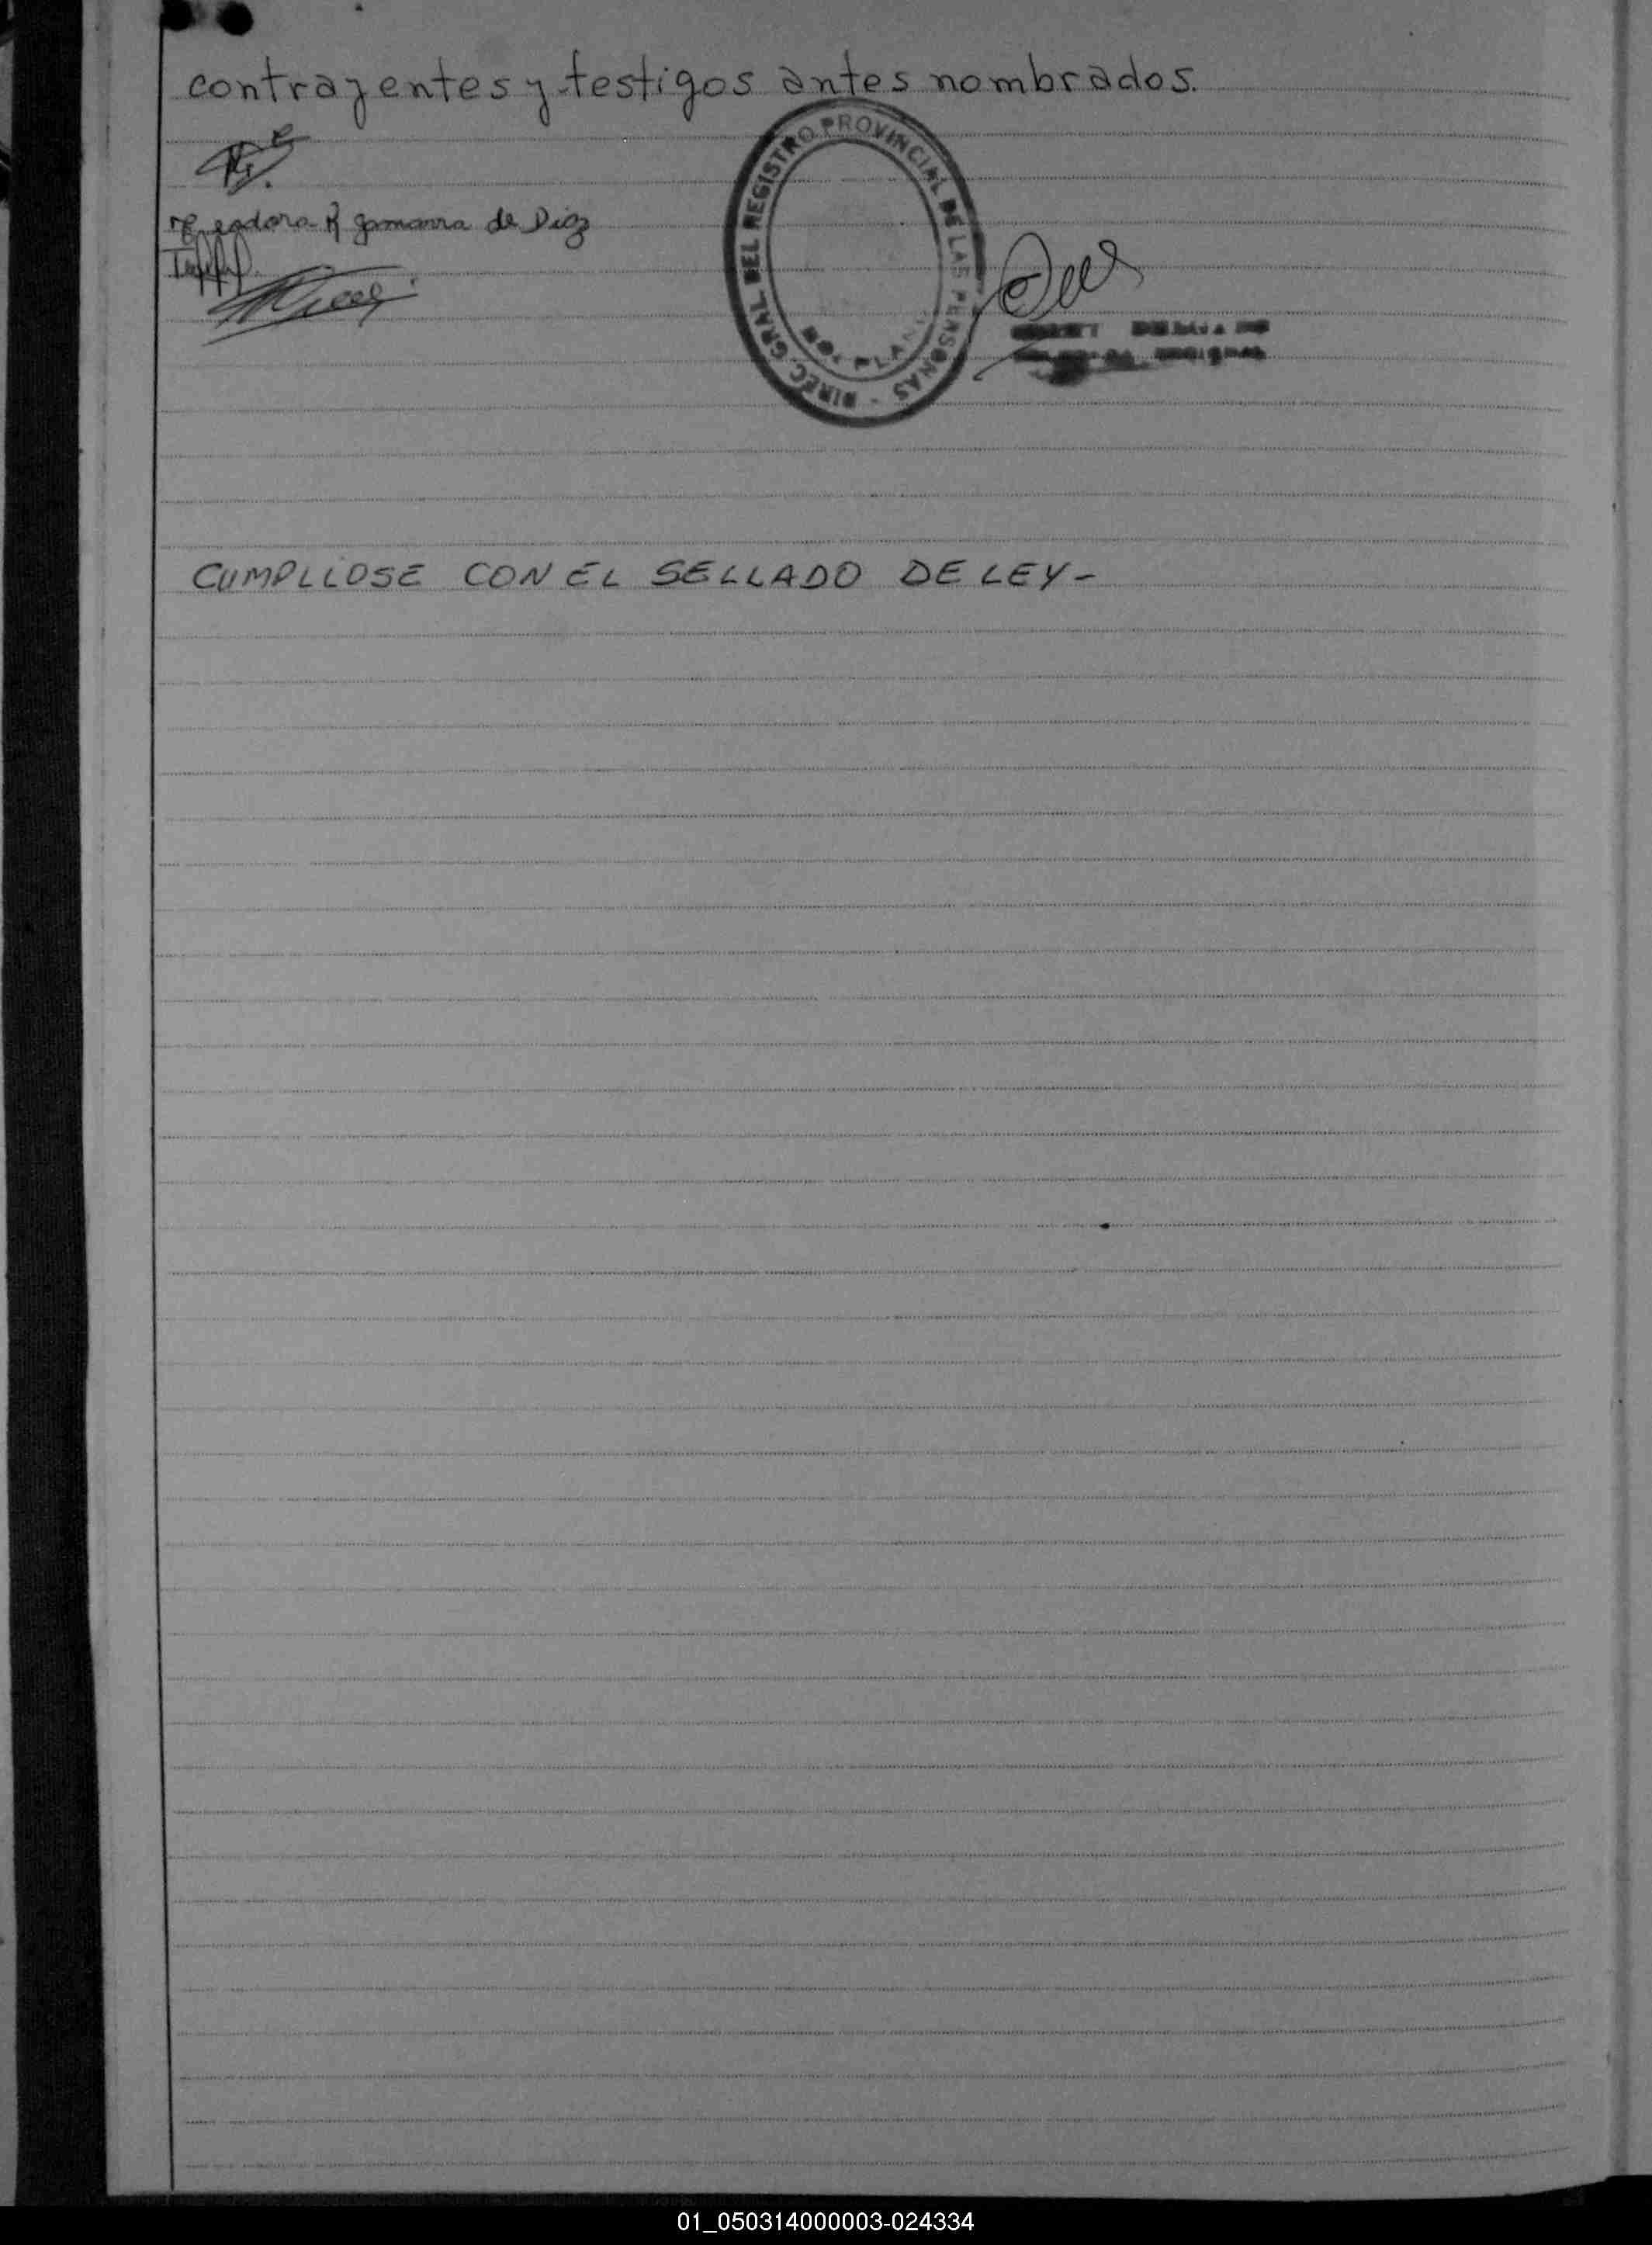 contrayentes y testigos antes nombrados.
R. Gamarra de Diaz
DIREC. GRAL DEL REGISTRO PROVINCIAL DE LAS PERSONAS -
CUMPLIOSE CON EL SELLADO DE LEY -
01_050314000003-024334